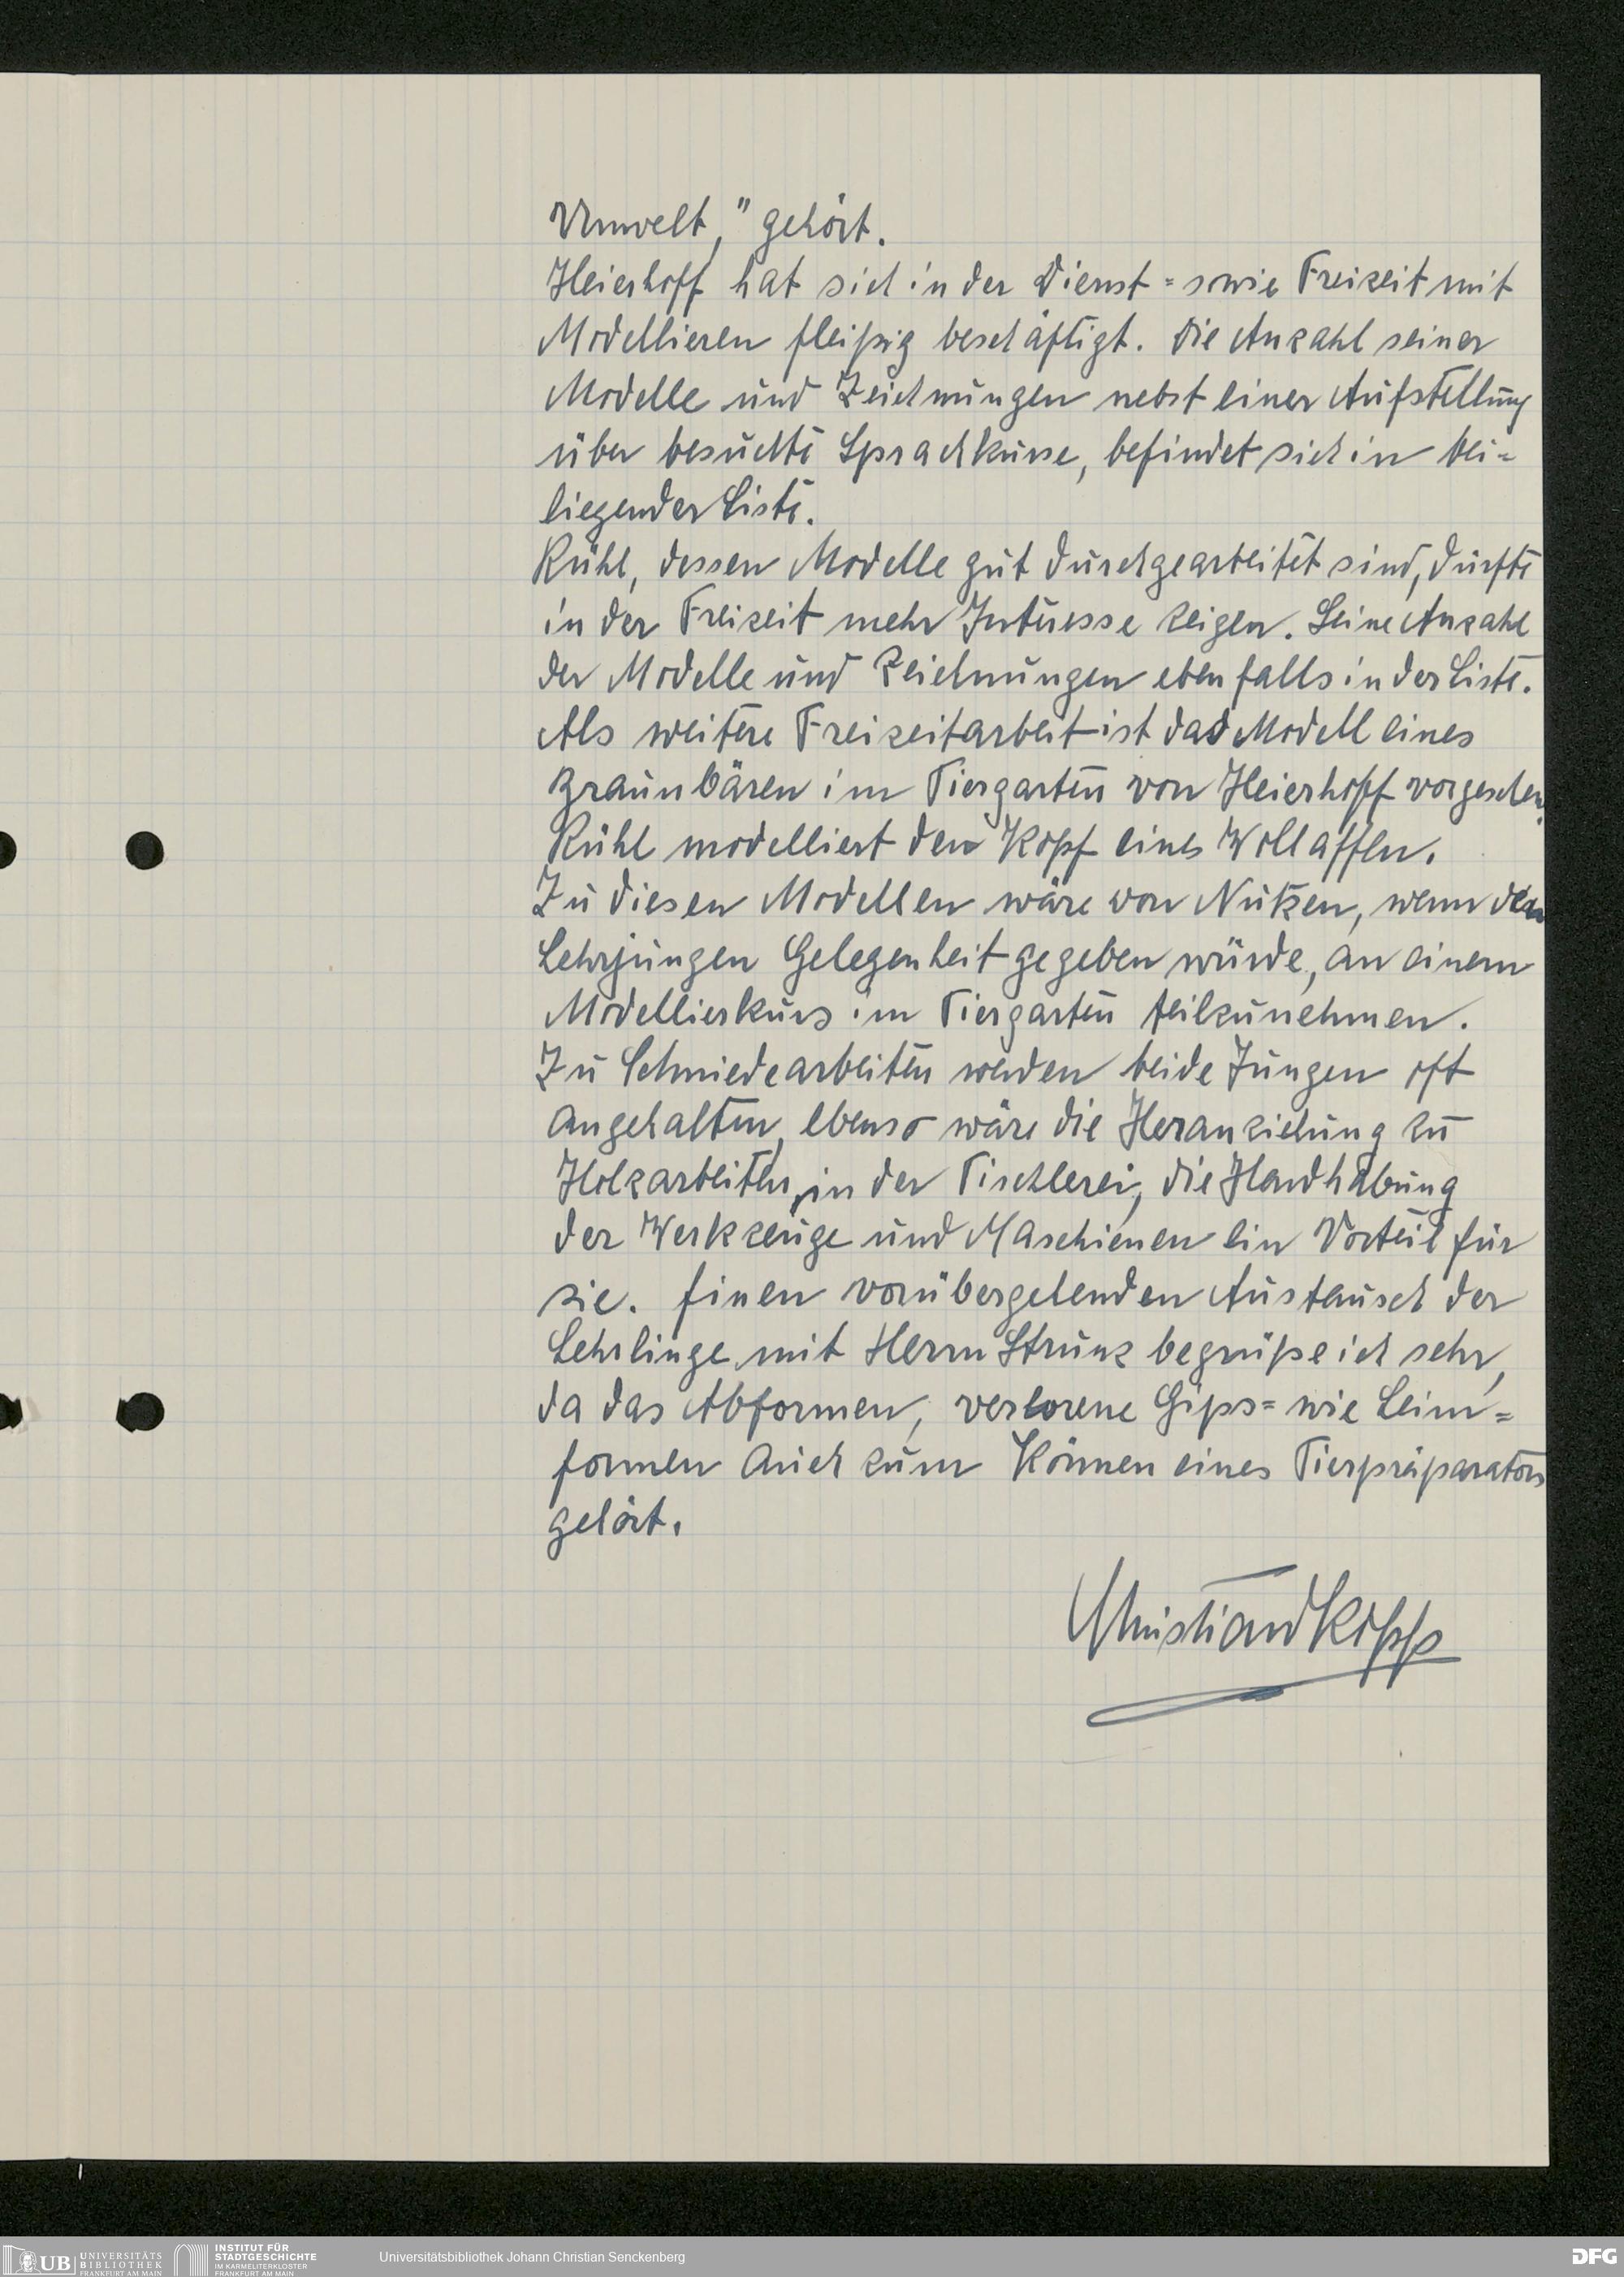 Umwelt," gehört.
Heierhoff hat sich in der Dienst= sowie Freizeit mit
Modellieren fleißig beschäftigt. Die Anzahl seiner
Modelle und Zeichnungen nebst einer Aufstellung
über besuchte Sprachkurse, befindet sich in bei=
liegender Liste.
Rühl, dessen Modelle gut durchgearbeitet sind, dürfte
in der Freizeit mehr Interesse zeigen. Seine Anzahl
der Modelle und Zeichnungen ebenfalls in der Liste.
Als weitere Freizeitarbeit ist das Modell eines
Braunbären im Tiergarten von Heierhoff vorgesehen.
Rühl modelliert den Kopf eines Wollaffen.
Zu diesen Modellen wäre von Nutzen, wenn den
Lehrjungen Gelegenheit gegeben würde, an einem
Modellierkurs im Tiergarten teilzunehmen.
Zu Schmiedearbeiten werden beide Jungen oft
angehalten, ebenso wäre die Heranziehung zu
Holzarbeiten, in der Tischlerei, die Handhabung
der Werkzeuge und Maschienen ein Vorteil für
sie. Einen vorübergehenden Austausch der
Lehrlinge mit Herrn Strunz begrüße ich sehr,
da das Abformen, verlorene Gips= wie Leim=
formen auch zum Können eines Tierpräparators
gehört.
Christian Kopp
UB UNIVERSITÄTS BIBLIOTHEK FRANKFURT AM MAIN
INSTITUT FÜR STADTGESCHICHTE IM KARMELITERKLOSTER FRANKFURT AM MAIN
Universitätsbibliothek Johann Christian Senckenberg
DFG